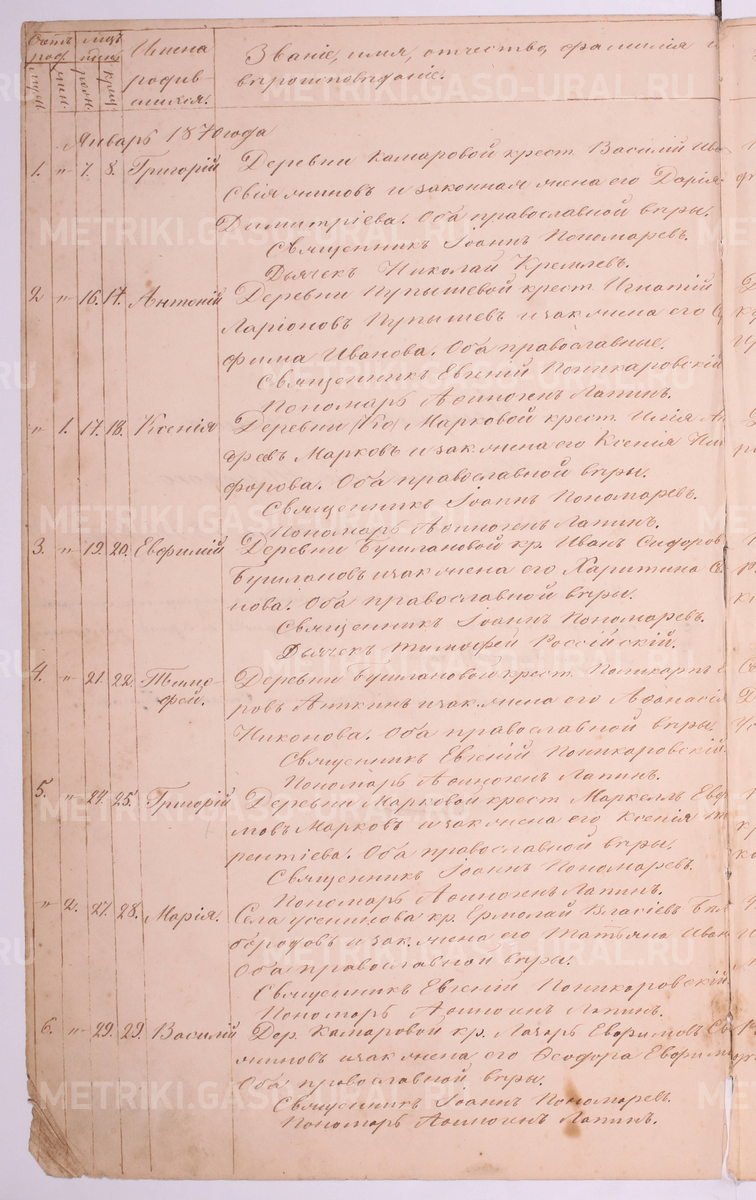 Счетъ род.
муж.
жен.
Мѣсяцъ и день
рожд.
крещ.
Имена родив-
шихся.
Званіе, имя, отчество, фамилія и
вѣроисповѣданіе.
Январь 1870 года
1. " 7. 8. Григорій Деревни Камаровой крест. Василій Ива
Свіяжниовъ и законная жена его Дарія
Димитріева. Оба православной вѣры.
Священникъ Іоаннъ Пономаревъ.
Дьячекъ Николай Кремлевъ.
2 " 16. 17. Антоній Деревни Пупышевой крест. Игнатій
Ларіоновъ Пупышевъ и зак. жена его
фима Иванова. Оба православные.
Священникъ Евгеній Поникаровскій
Пономарь Аѳиногенъ Лапинъ.
" 1. 17. 18. Ксенія Деревни (Ко) Марковой крест. Илія Ан
дреевъ Марковъ и зак. жена его Ксенія Ники
форова. Оба православной вѣры.
Священникъ Іоаннъ Пономаревъ.
Пономарь Аѳиногенъ Лапинъ.
3. " 19. 20. Евфимій Деревни Бушлановой кр. Иванъ Сидоровъ
Бушлановъ и зак. жена его Харитина
нова. Оба православной вѣры.
Священникъ Іоаннъ Пономаревъ.
Дьячекъ Тимоѳей Россійскій.
4. " 21. 22. Тимо-
фей. Деревни Бушлановой крест. Поликарпъ
ровъ Аникинъ и зак. жена его Аѳанасія
Никонова. Оба православной вѣры.
Священникъ Евгеній Поникаровскій.
Пономарь Аѳиногенъ Лапинъ.
5. " 24. 25. Григорій Деревни Марковой крест. Маркеллъ Евфи
мовъ Марковъ и зак. жена его Ксенія
рентіева. Оба православной вѣры.
Священникъ Іоаннъ Пономаревъ.
Пономарь Аѳиногенъ Лапинъ.
" 2. 27. 28. Марія. Села Усенинова кр. Ермолай Власіевъ Бѣл
обродовъ и зак. жена его Татьяна Иван
Оба православной вѣры.
Священникъ Евгеній Поникаровскій
Пономарь Аѳиногенъ Лапинъ.
6. " 29. 29. Василій Дер. Камаровой кр. Лазарь Евфимовъ Свя
жниовъ и зак. жена его Ѳеодора Евфимі
Оба православной вѣры.
Священникъ Іоаннъ Пономаревъ.
Пономарь Аѳиногенъ Лапинъ.
METRIKI.GASO-URAL.RU